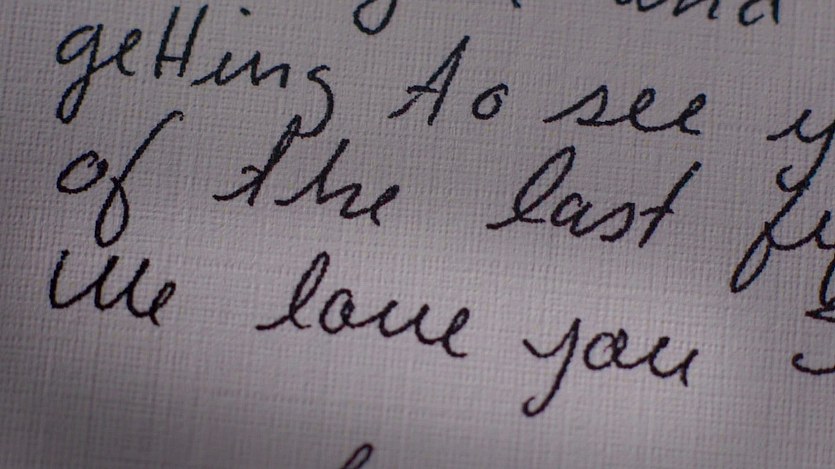 and
getting to see
of the last
We love you